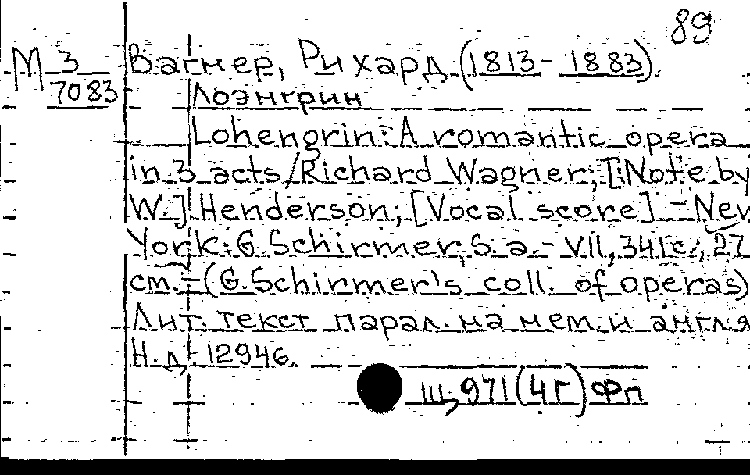 89
М 3
7083
Вагнер, Рихард (1813-1883).
Лоэнгрин
Lohengrin: A romantic opera
in 3 acts/Richard Wagner; [Note by
W.] Henderson; [Vocal score] - New
York: G. Schirmer, S. a. - VII, 341 с., 27
см. - (G. Schirmer's coll. of operas)
Лит. текст парал. на нем. и англ. я
Н. д. 12946.
Щ971(4Г)Фп